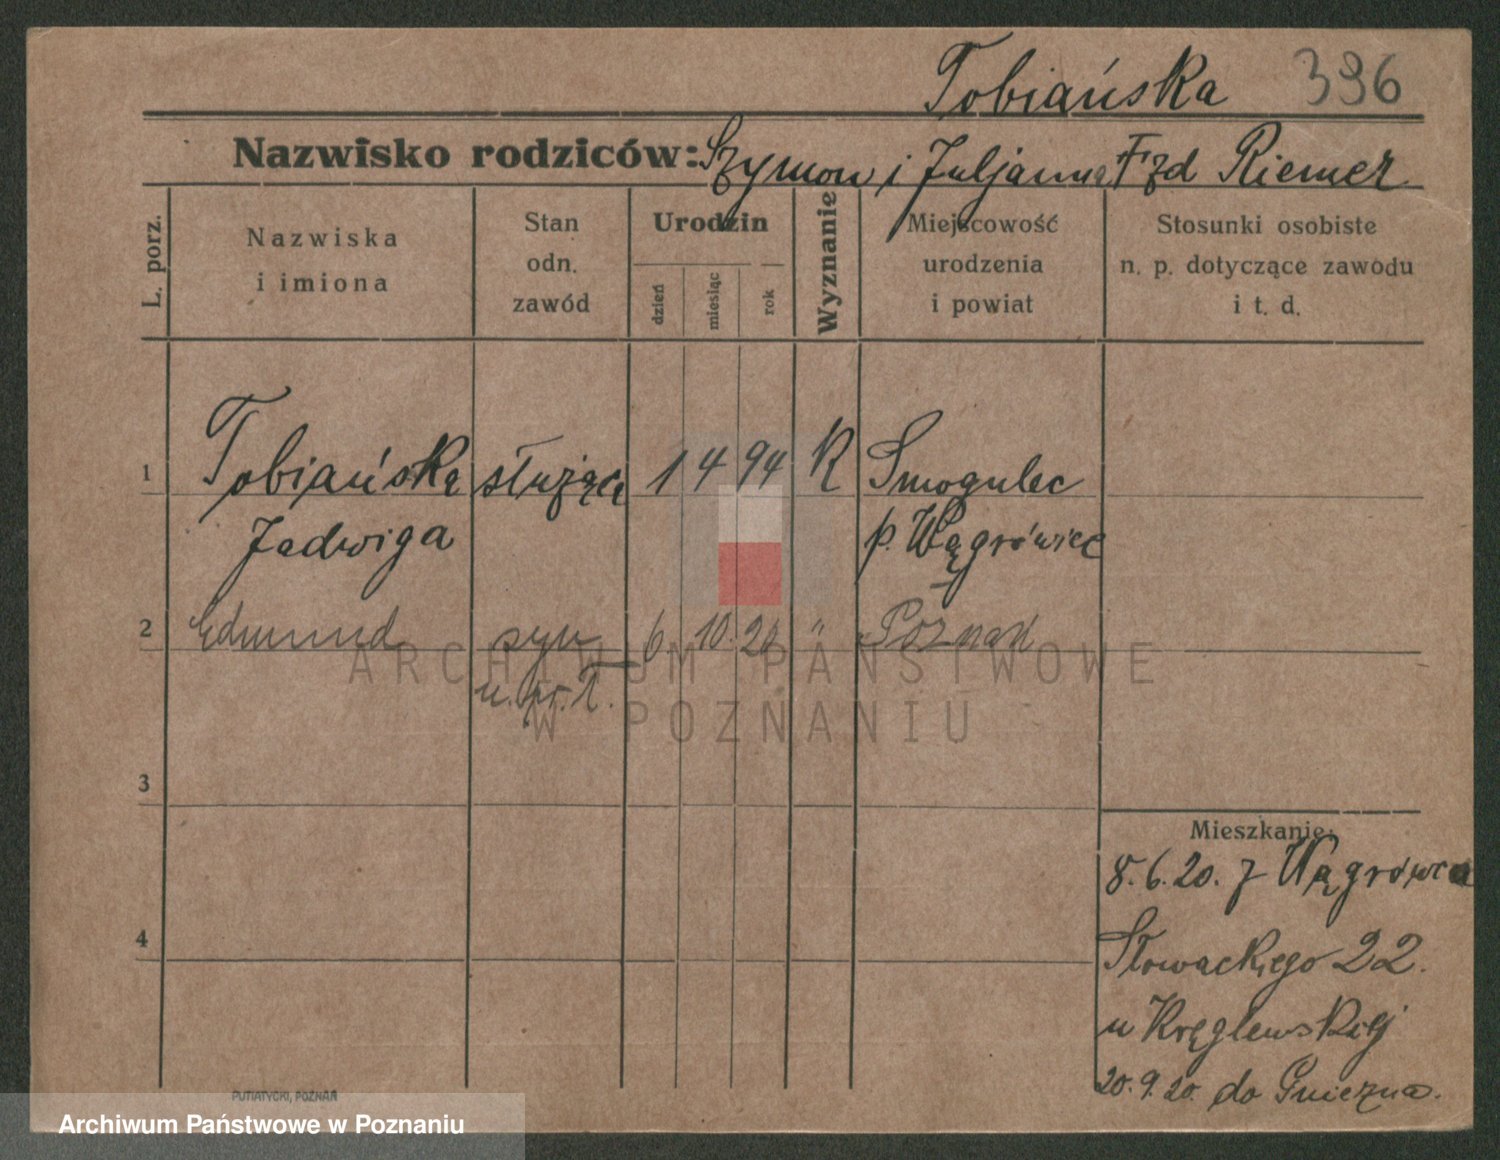 Tobiańska 396
Nazwisko rodziców: Szymon i Juljanna Riemer
L. porz.
Nazwiska
i imiona
Stan
odn.
zawód
Urodzin
dzień
miesiąc
rok
Wyznanie
Miejscowość
urodzenia
i powiat
Stosunki osobiste
n. p. dotyczące zawodu
i t. d.
1 Tobiańska służąca 1 4 94 K Smogulec
Jadwiga p. Wągrówiec
2 Edmund syn 6 10. 20 " Poznań
ARCHIWUM PAŃSTWOWE
W POZNANIU
3
Mieszkanie:
8.6.20. z Wągrówca
4
Słowackiego 22.
u Kręglewskiej
20.9.20. do Gniezna.
PUTIATYCKI, POZNAŃ
Archiwum Państwowe w Poznaniu